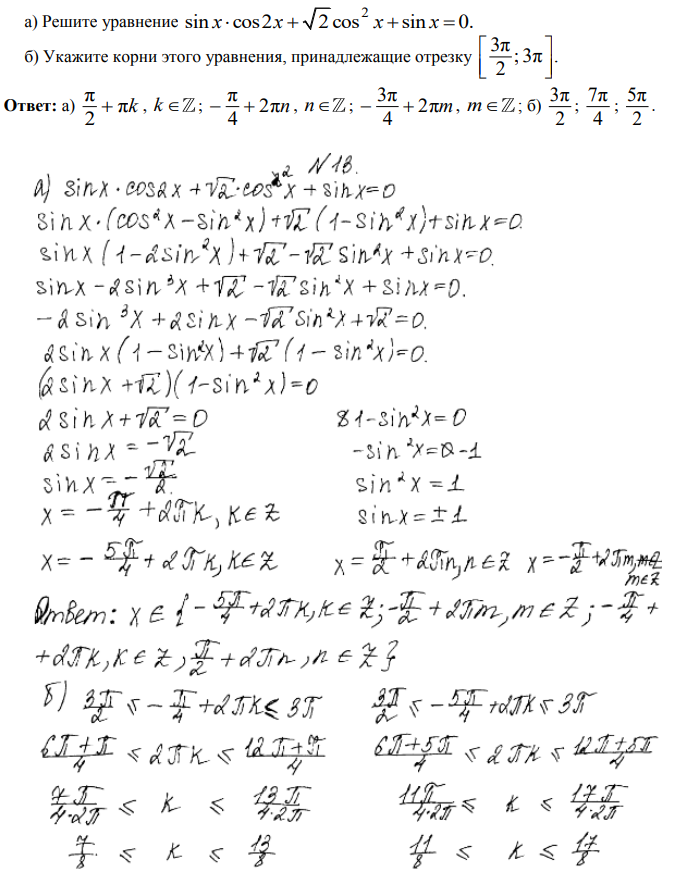 а) Решите уравнение sin x · cos 2x + √2 cos² x + sin x = 0.
б) Укажите корни этого уравнения, принадлежащие отрезку [3π/2; 3π].
Ответ: а) π/2 + πk, k ∈ ℤ; −π/4 + 2πn, n ∈ ℤ; −3π/4 + 2πm, m ∈ ℤ; б) 3π/2; 7π/4; 5π/2.
N 13.
а) sin x · cos 2x + √2 · cos² x + sin x = 0
sin x · (cos² x − sin² x) + √2 (1 − sin² x) + sin x = 0.
sin x (1 − 2 sin² x) + √2 − √2 sin² x + sin x = 0.
sin x − 2 sin³ x + √2 − √2 sin² x + sin x = 0.
−2 sin³ x + 2 sin x − √2 sin² x + √2 = 0.
2 sin x (1 − sin² x) + √2 (1 − sin² x) = 0.
(2 sin x + √2)(1 − sin² x) = 0
2 sin x + √2 = 0 1 − sin² x = 0
2 sin x = −√2 −sin² x = −1
sin x = −√2/2. sin² x = 1
x = −π/4 + 2πk, k ∈ Z sin x = ±1
x = −5π/4 + 2πk, k ∈ Z x = π/2 + 2πn, n ∈ Z x = −π/2 + 2πm,
m ∈ Z
Ответ: x ∈ {−5π/4 + 2πk, k ∈ Z; −π/2 + 2πm, m ∈ Z; −π/4 +
+ 2πk, k ∈ Z, π/2 + 2πn, n ∈ Z}
б) 3π/2 ≤ −π/4 + 2πk ≤ 3π 3π/2 ≤ −5π/4 + 2πk ≤ 3π
6π+π/4 ≤ 2πk ≤ 12π+π/4 6π+5π/4 ≤ 2πk ≤ 12π+5π/4
7π/4·2π ≤ k ≤ 13π/4·2π 11π/4·2π ≤ k ≤ 17π/4·2π
7/8 ≤ k ≤ 13/8 11/8 ≤ k ≤ 17/8